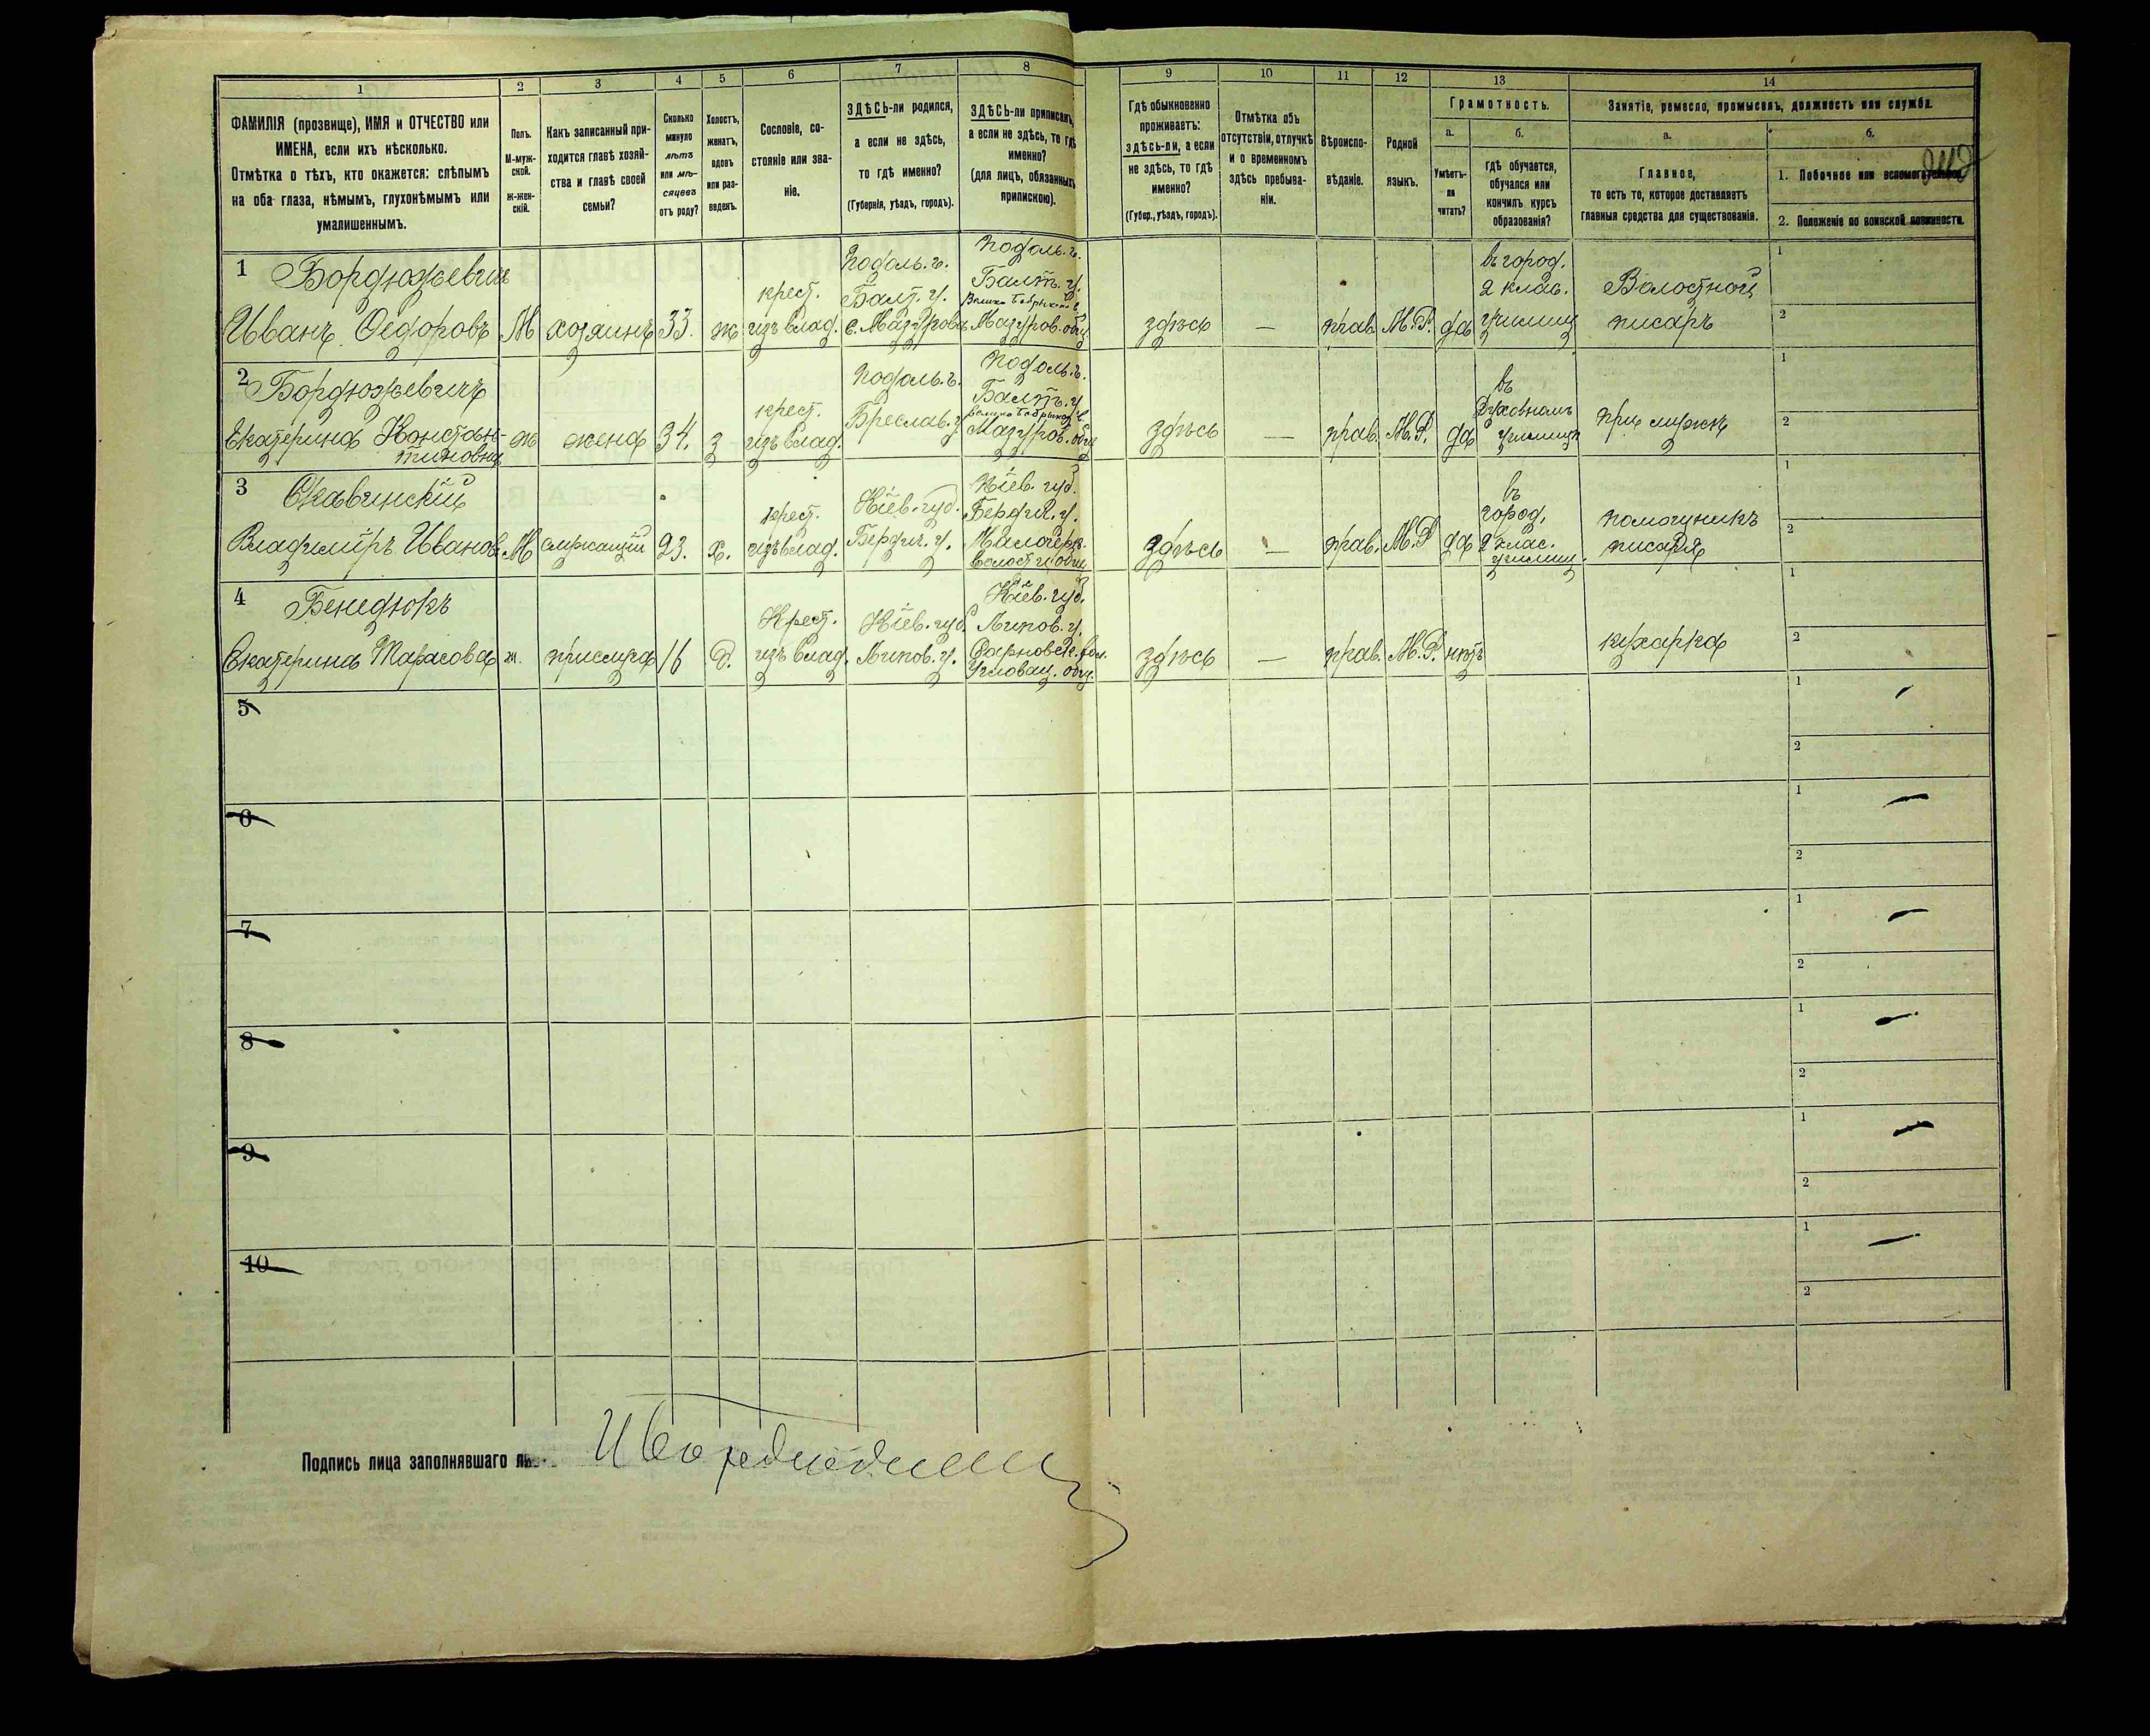 1 2 3 4 5 6 7 8 9 10 11 12 13 14
ФАМИЛІЯ (прозвище), ИМЯ и ОТЧЕСТВО или
ИМЕНА, если ихъ нѣсколько.
Отмѣтка о тѣхъ, кто окажется: слѣпымъ
на оба глаза, нѣмымъ, глухонѣмымъ или
умалишеннымъ.
Полъ.
М-муж-
ской.
Ж-жен-
скій.
Какъ записанный при-
ходится главѣ хозяй-
ства и главѣ своей
семьи?
Сколько
минуло
лѣтъ
или мѣ-
сяцевъ
отъ роду?
Холостъ,
женатъ,
вдовъ
или раз-
веденъ.
Сословіе, со-
стояніе или зва-
ніе.
ЗДѢСЬ-ли родился,
а если не здѣсь,
то гдѣ именно?
(Губернія, уѣздъ, городъ).
ЗДѢСЬ-ли приписанъ,
а если не здѣсь, то гдѣ
именно?
(для лицъ, обязанныхъ
припискою).
Гдѣ обыкновенно
проживаетъ:
здѣсь-ли, а если
не здѣсь, то гдѣ
именно?
(Губер., уѣздъ, городъ).
Отмѣтка объ
отсутствіи, отлучкѣ
и о временномъ
здѣсь пребыва-
ніи.
Вѣроиспо-
вѣданіе.
Родной
языкъ.
Грамотность.
а.
Умѣетъ-
ли
читать?
б.
гдѣ обучается,
обучался или
кончилъ курсъ
образованія?
Занятіе, ремесло, промыселъ, должность или служба.
а.
Главное,
то есть то, которое доставляетъ
главныя средства для существованія.
б.
1. Побочное или вспомогательное.
2. Положеніе по воинской повинности.
1 Бордюжевичъ
Иванъ Ѳедоровъ
М
хозяинъ
33.
ж
крест.
изъ влад.
Подоль. г.
Балт. у.
с. Мазуровка
Подоль. г.
Балт. у.
Мазуров. общ
здѣсь
—
прав.
М.Р.
да
въ город.
2 клас.
училищ
Волостной
писарь
1
2
2 Бордюжевичъ
Екатерина Констан-
тиновна
ж
жена
34.
з
крест.
изъ влад.
Подоль. г.
Бреслав. у.
Подоль. г.
Балт. у.
Мазуров. общ
здѣсь
—
прав.
М.Р.
да
въ
Духовномъ
училищѣ
при мужѣ
1
2
3 Скавинскій
Владиміръ Иванов.
М
служащій
23.
х.
крест.
изъ влад.
Кіев. губ.
Бердич. у.
Кіев. губ.
Бердич. у.
здѣсь
—
прав.
М.Р
да
въ
город.
2 клас.
училищ.
помощникъ
писаря
1
2
4 Бенедюкъ
Екатерина Тарасова
ж.
прислуга
16
д.
Крест.
изъ влад.
Кіев. губ.
Липов. у.
Кіев. губ.
Липов. у.
здѣсь
—
прав.
М.Р.
нѣтъ
кухарка
1
2
5
1
2
6
1
2
7
1
2
8
1
2
9
1
2
10
1
2
Подпись лица заполнявшаго